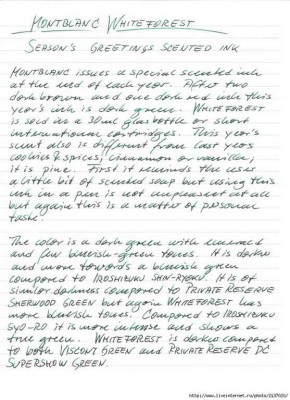 MONTBLANC WHITEFOREST
SEASON'S GREETINGS SCENTED INK
MONTBLANC issues a special scented ink
at the end of each year. After two
dark brown and one dark red inks this
year's ink is dark green. WHITEFOREST
is sold in a 30ml glas bottle or short
international cartridges. This year's
scent also is different from last years
cookies & spices, cinnamon or vanilla,
it is pine. First it reminds the user
a little bit of scented soap but using this
ink in a pen is not unpleasant at all
but again this is a matter of personal
taste.
The color is a dark green with emerald
and few blueish-green tones. It is darker
and more towards a blueish green
compared to IROSHIZUKU SHIN-RYOKU. It is of
similar darkness compared to PRIVATE RESERVE
SHERWOOD GREEN but again WHITEFOREST has
more blueish tones. Compared to IROSHIZUKU
SYO-RO it is more intense and shows a
true green. WHITEFOREST is darker compared
to both VISCONTI GREEN and PRIVATE RESERVE DC
SUPERSHOW GREEN.